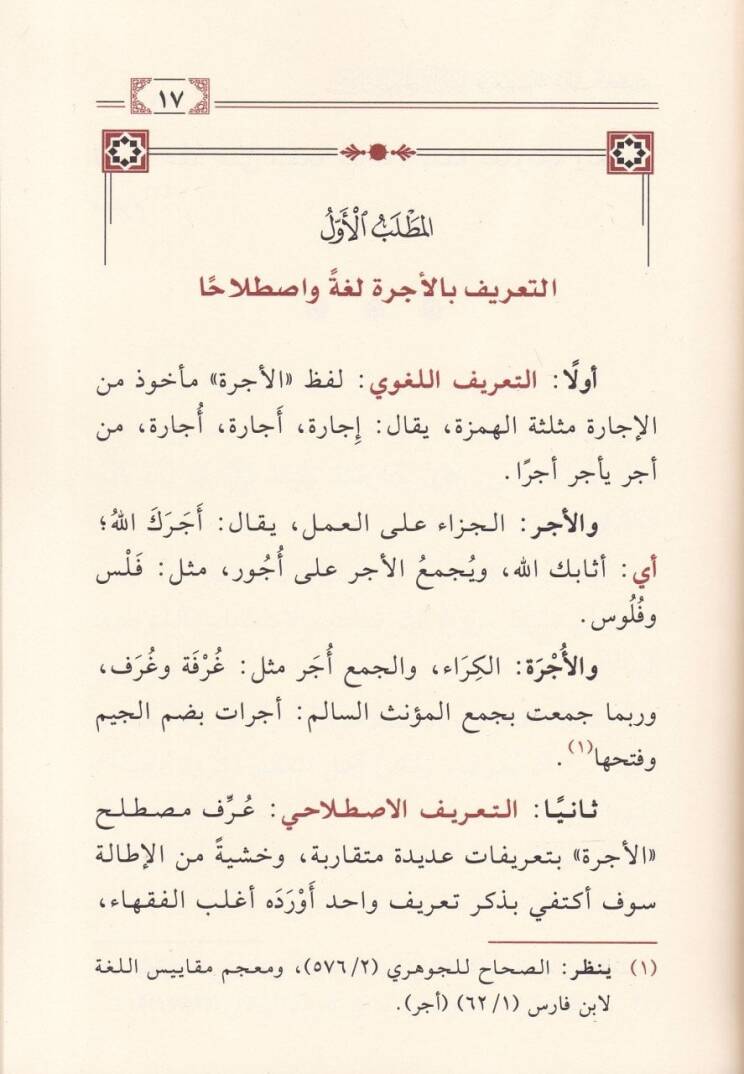 ١٧
المَطْلَبُ الْأَوَّلُ
التعريف بالأجرة لغةً واصطلاحًا
أولًا: التعريف اللغوي: لفظ «الأجرة» مأخوذ من
الإجارة مثلثة الهمزة، يقال: إِجارة، أَجارة، أُجارة، من
أجر يأجر أجرًا.
والأجر: الجزاء على العمل، يقال: أَجَرَكَ اللهُ؛
أي: أثابك الله، ويُجمعُ الأجر على أُجُور، مثل: فَلْس
وفُلُوس.
والأُجْرَة: الكِرَاء، والجمع أُجَر مثل: غُرْفَة وغُرَف،
وربما جمعت بجمع المؤنث السالم: أجرات بضم الجيم
وفتحها(١).
ثانيًا: التعريف الاصطلاحي: عُرِّف مصطلح
«الأجرة» بتعريفات عديدة متقاربة، وخشيةً من الإطالة
سوف أكتفي بذكر تعريف واحد أَوْرَدَه أغلب الفقهاء،
(١) ينظر: الصحاح للجوهري (٥٧٦/٢)، ومعجم مقاييس اللغة
لابن فارس (٦٢/١) (أجر).